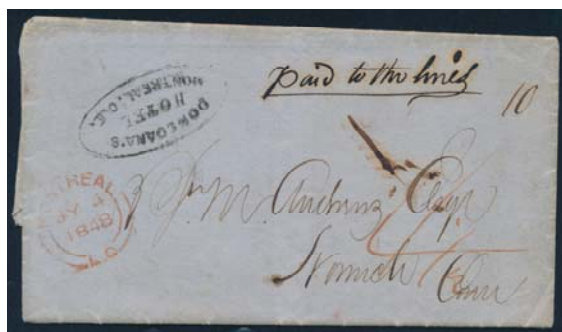 paid to the lines
10
DONEGANA'S
HOTEL
MONTREAL, C.E.
MONTREAL
JY 3
1848
L.C
Jno M. Esqr
Norwich
Conn